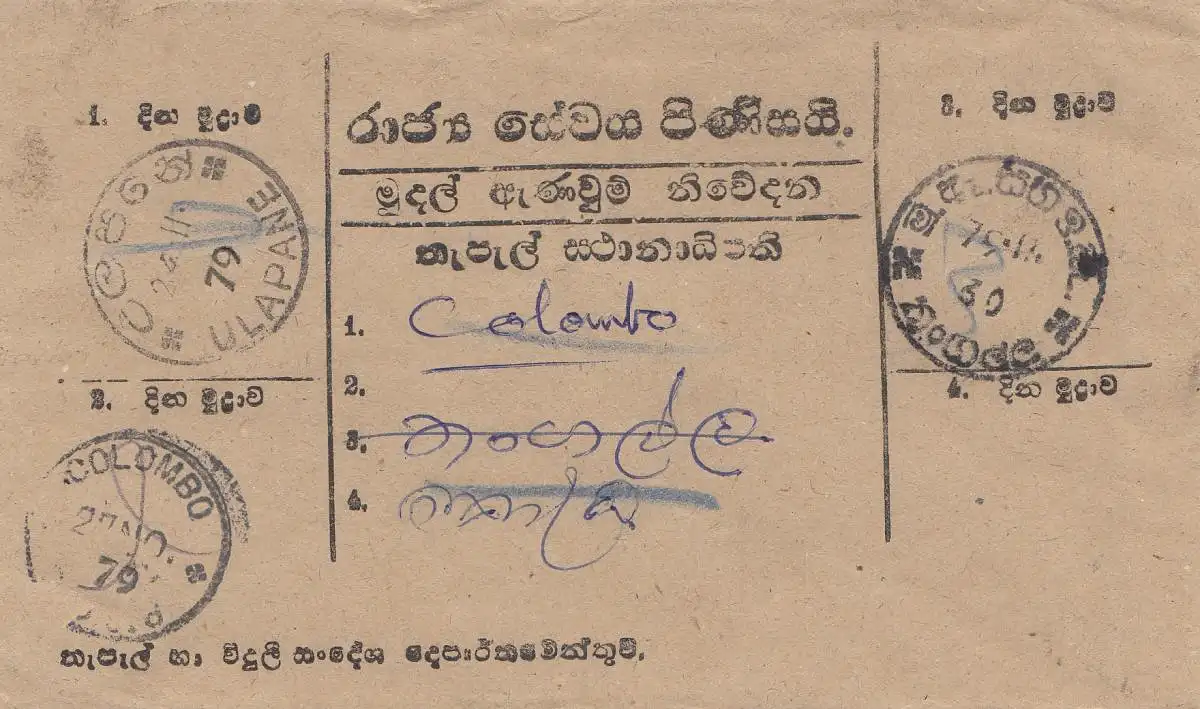 1. දින මුද්‍රාව
උලපනේ
24 11
79
ULAPANE
2. දින මුද්‍රාව
COLOMBO
27 NO.
79
රාජ්‍ය සේවය පිණිසයි.
මුදල් ඇණවුම් නිවේදන
තැපැල් ස්ථානාධිපති
1. Colombo
2.
3. තංගල්ල
4.
3. දින මුද්‍රාව
79.11.
30
තංගල්ල
4. දින මුද්‍රාව
තැපැල් හා විදුලි සංදේශ දෙපාර්තමේන්තුව.